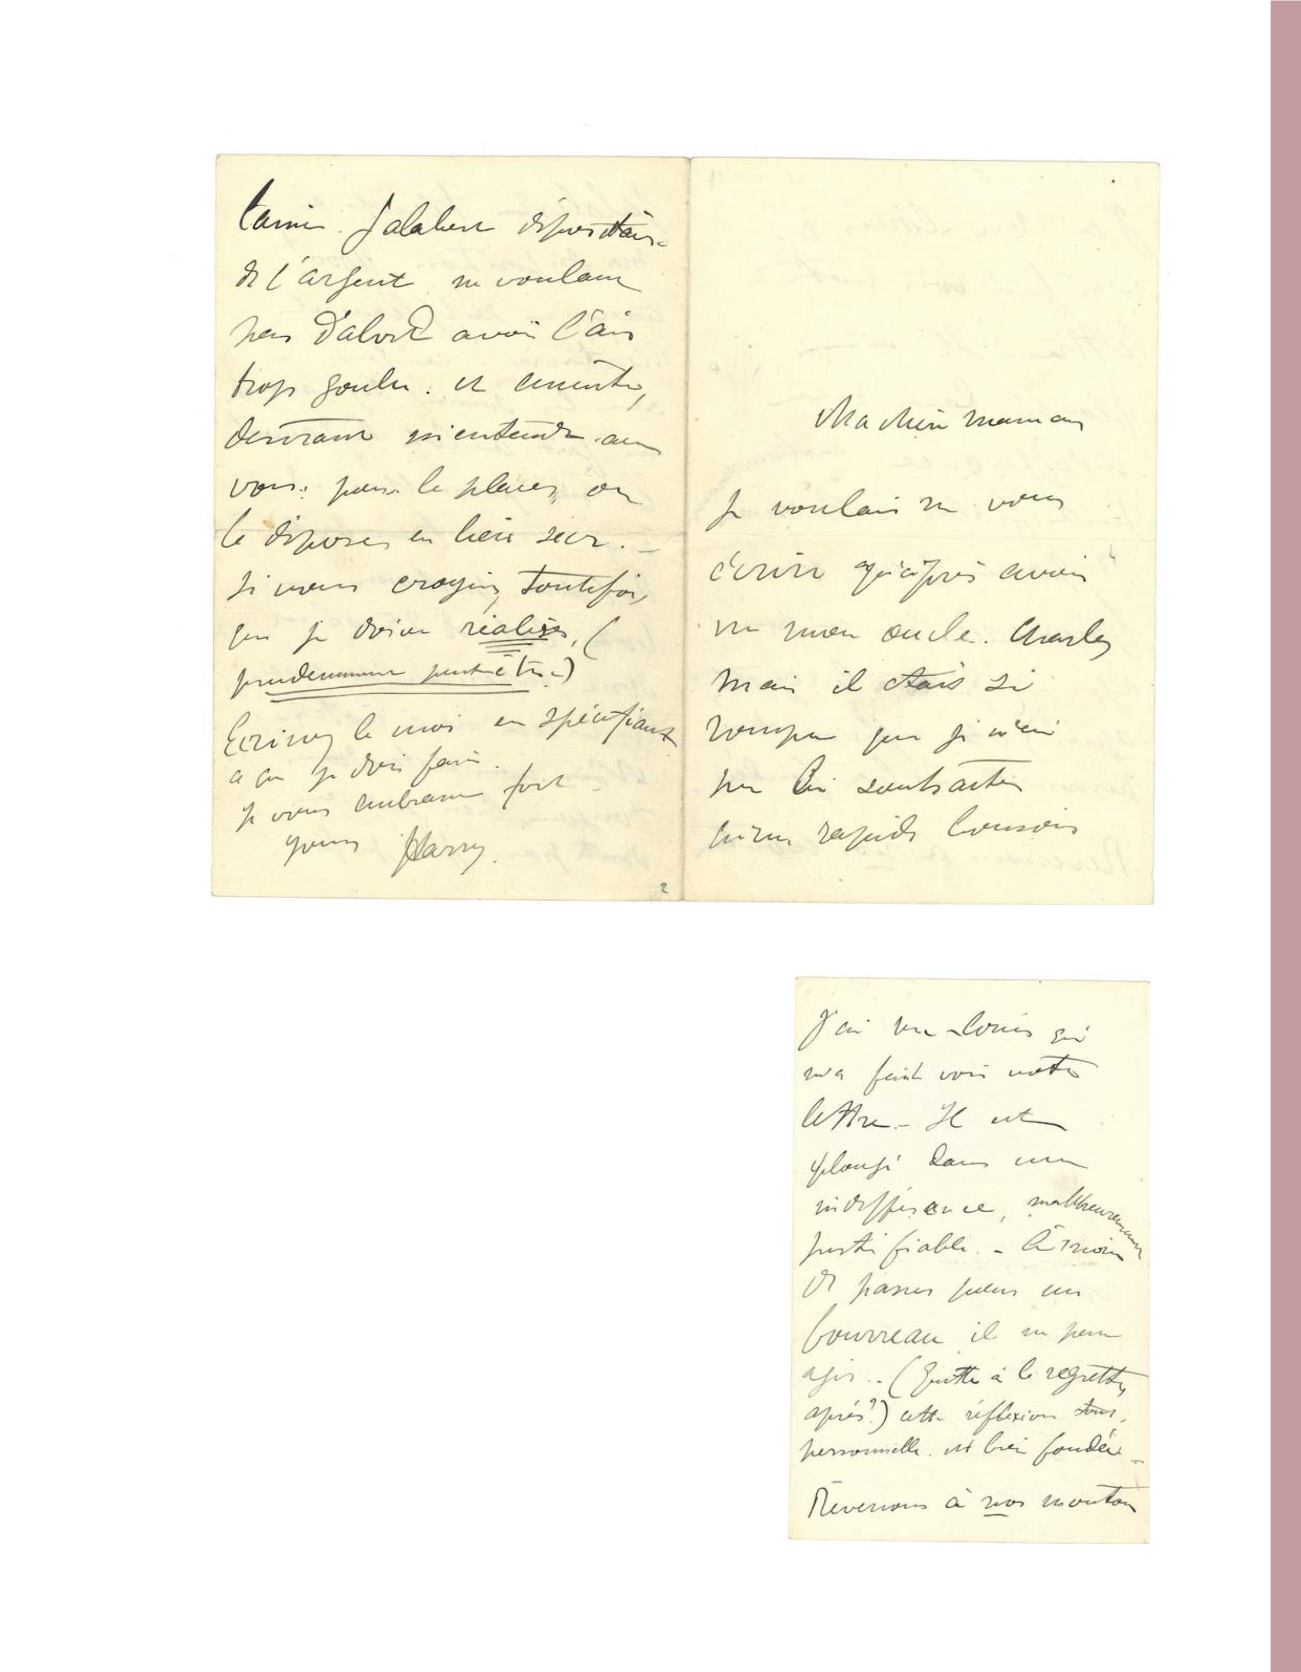 Ma chère maman
Je voulais ne vous
écrire qu'après avoir
vu mon oncle. Charles
mais il était si
rompu que je n'ai
pu lui soustraire
qu'un rapide bonsoir
J'ai vu Louis qui
m'a fait voir votre
lettre - Il est
plongé dans une
indifférence, malheureusement
justifiable. - À moins
de passer pour un
bourreau il ne peut
agir .. (Quitte à le regretter
après?) cette réflexion toute
personnelle. est bien fondée -
Revenons à nos moutons
l'ami. Jalabert dépositaire
de l'argent ne voulant
pas d'abord avoir l'air
trop goulu. et ensuite,
désirant m'entendre avec
vous: pour le placer, ou
le déposer en lieu sûr. -
Si vous croyez, toutefois,
que je doive réaliser, (
prudemment peut-être)
Écrivez le moi en spécifiant
ce que je dois faire.
Je vous embrasse fort -
yours Harry.
2